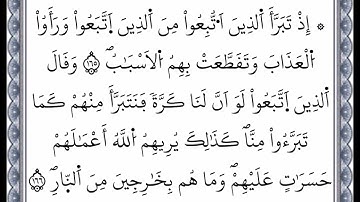 ۞ إِذْ تَبَرَّأَ اَ۬لذِينَ اَ۟تُّبِعُواْ مِنَ اَ۬لذِينَ اَ۪تَّبَعُواْ وَرَأَوُاْ
اُ۬لْعَذَابَ وَتَقَطَّعَتْ بِهِمُ اُ۬لَاسْبَٰبُۖ ١٦٥ وَقَالَ
اَ۬لذِينَ اَ۪تَّبَعُواْ لَوَ اَنَّ لَنَا كَرَّةٗ فَنَتَبَرَّأَ مِنْهُمْ كَمَا
تَبَرَّءُواْ مِنَّاۖ كَذَٰلِكَ يُرِيهِمُ اُ۬للَّهُ أَعْمَٰلَهُمْ
حَسَرَٰتٍ عَلَيْهِمْۖ وَمَا هُم بِخَٰرِجِينَ مِنَ اَ۬لنّ۪ارِۖ ١٦٦